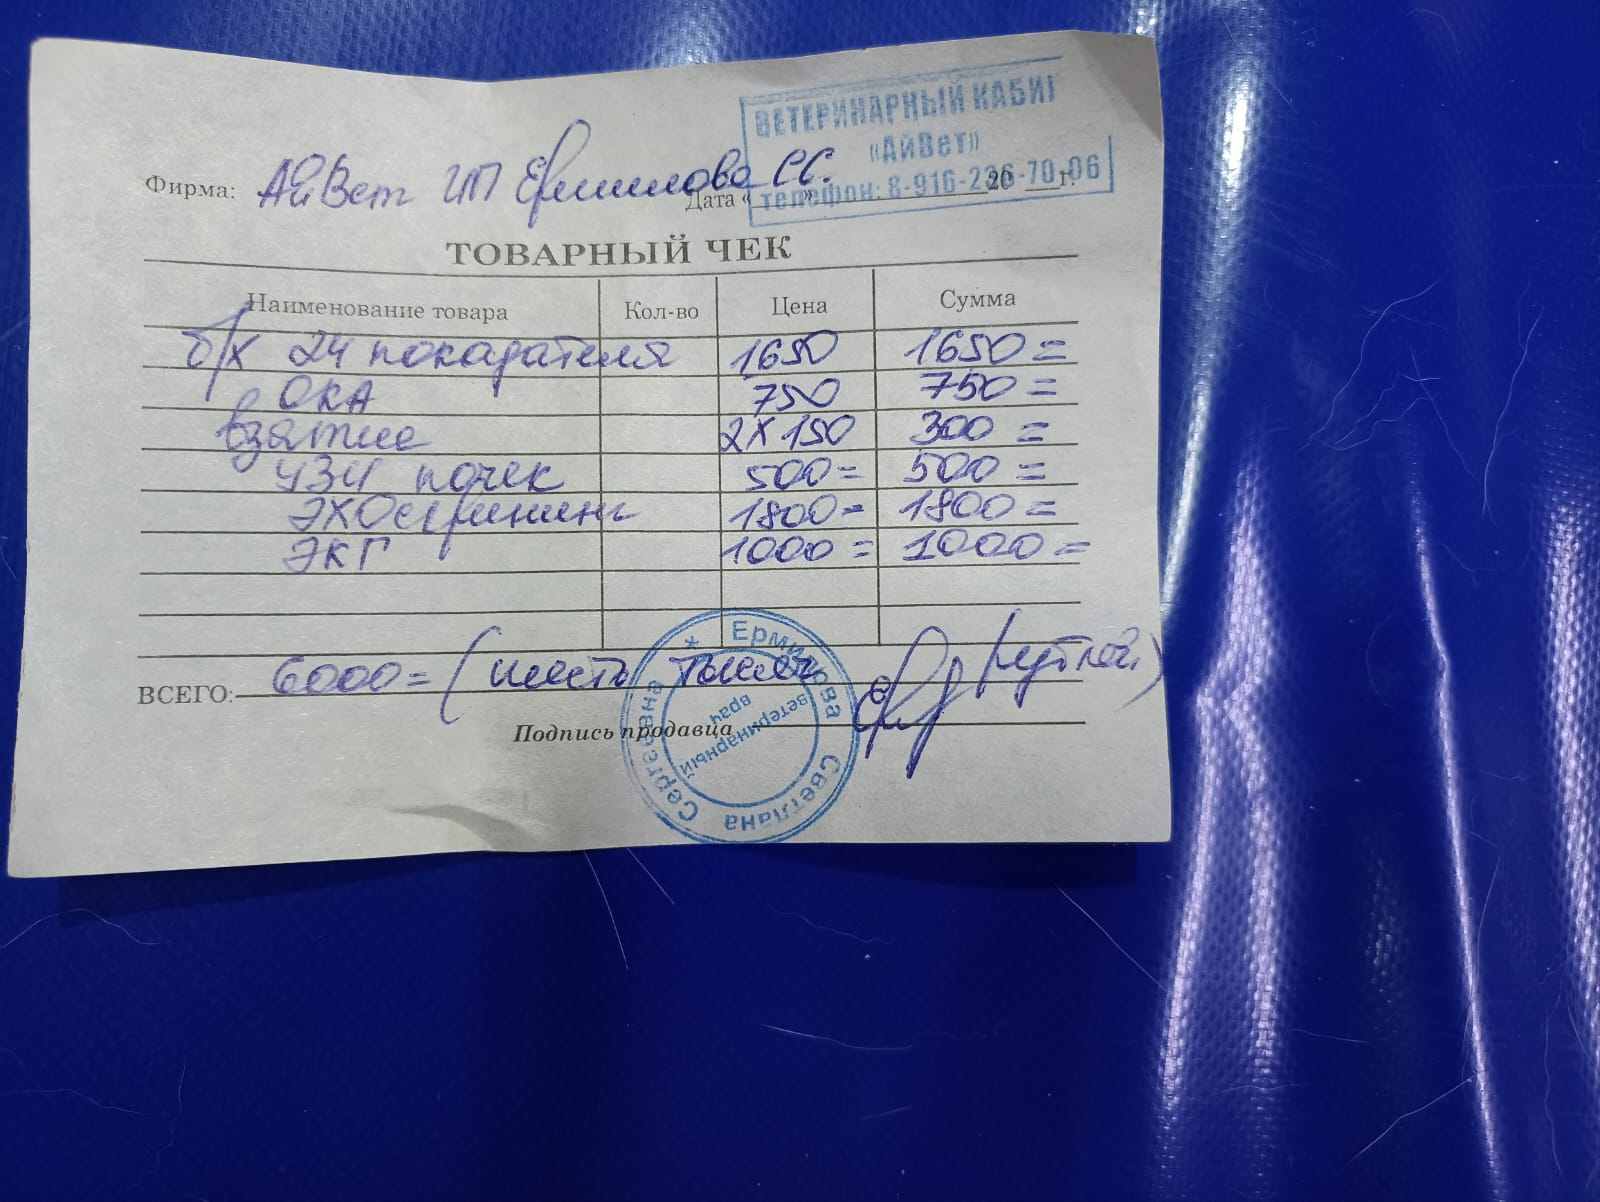 ВЕТЕРИНАРНЫЙ КАБИ
«АйВет»
телефон: 8-916-226-70-06
Фирма: АйВет ИП Ермилова С.С.
Дата « » 20 г.
ТОВАРНЫЙ ЧЕК
Наименование товара Кол-во Цена Сумма
б/х 24 показателя 1650 1650=
ОКА 750 750=
взятие 2х150 300=
УЗИ почек 500= 500=
ЭХОскрининг 1800= 1800=
ЭКГ 1000= 1000=
ВСЕГО: 6000= (шесть тысяч рублей)
Подпись продавца
Ермилова Светлана Сергеевна *
ветеринарный
врач